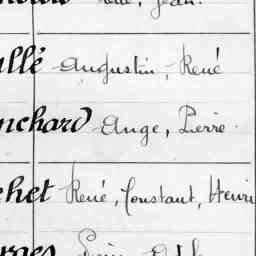 Jean.
allé Augustin, René
nchard Ange, Pierre.
chet René, Constant, Henri